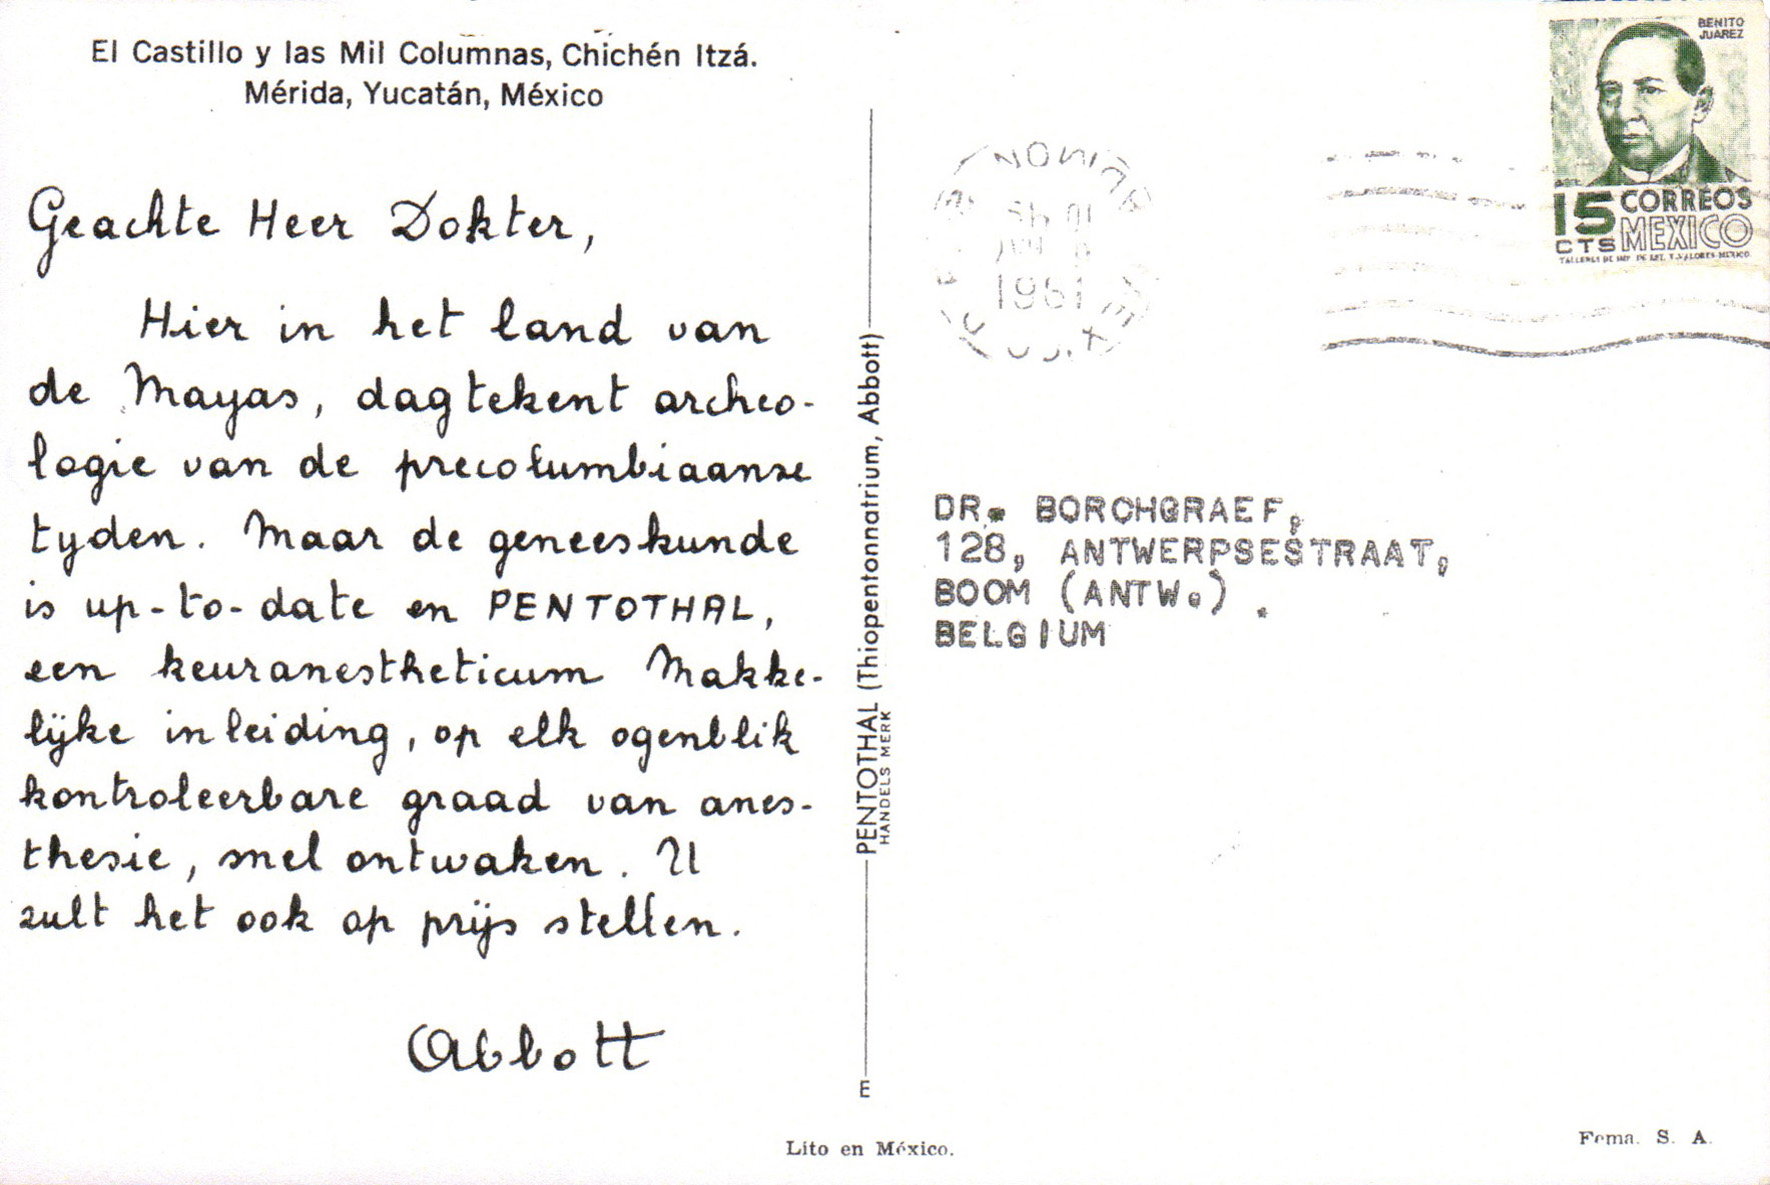 El Castillo y las Mil Columnas, Chichén Itzá.
Mérida, Yucatán, México
Geachte Heer Dokter,
Hier in het land van
de Mayas, dagtekent archeo-
logie van de precolumbiaanse
tyden. Maar de geneeskunde
is up-to-date en PENTOTHAL,
een keuranestheticum Makke-
lijke inleiding, op elk ogenblik
kontroleerbare graad van anes-
thesie, snel ontwaken. U
zult het ook op prijs stellen.
Abbott
PENTOTHAL (Thiopentonnatrium, Abbott)
HANDELS MERK
E
BENITO
JUAREZ
15 CTS
CORREOS
MEXICO
1961
DR. BORCHGRAEF,
128, ANTWERPSESTRAAT,
BOOM (ANTW.) .
BELGIUM
Lito en México.
Fema. S. A.